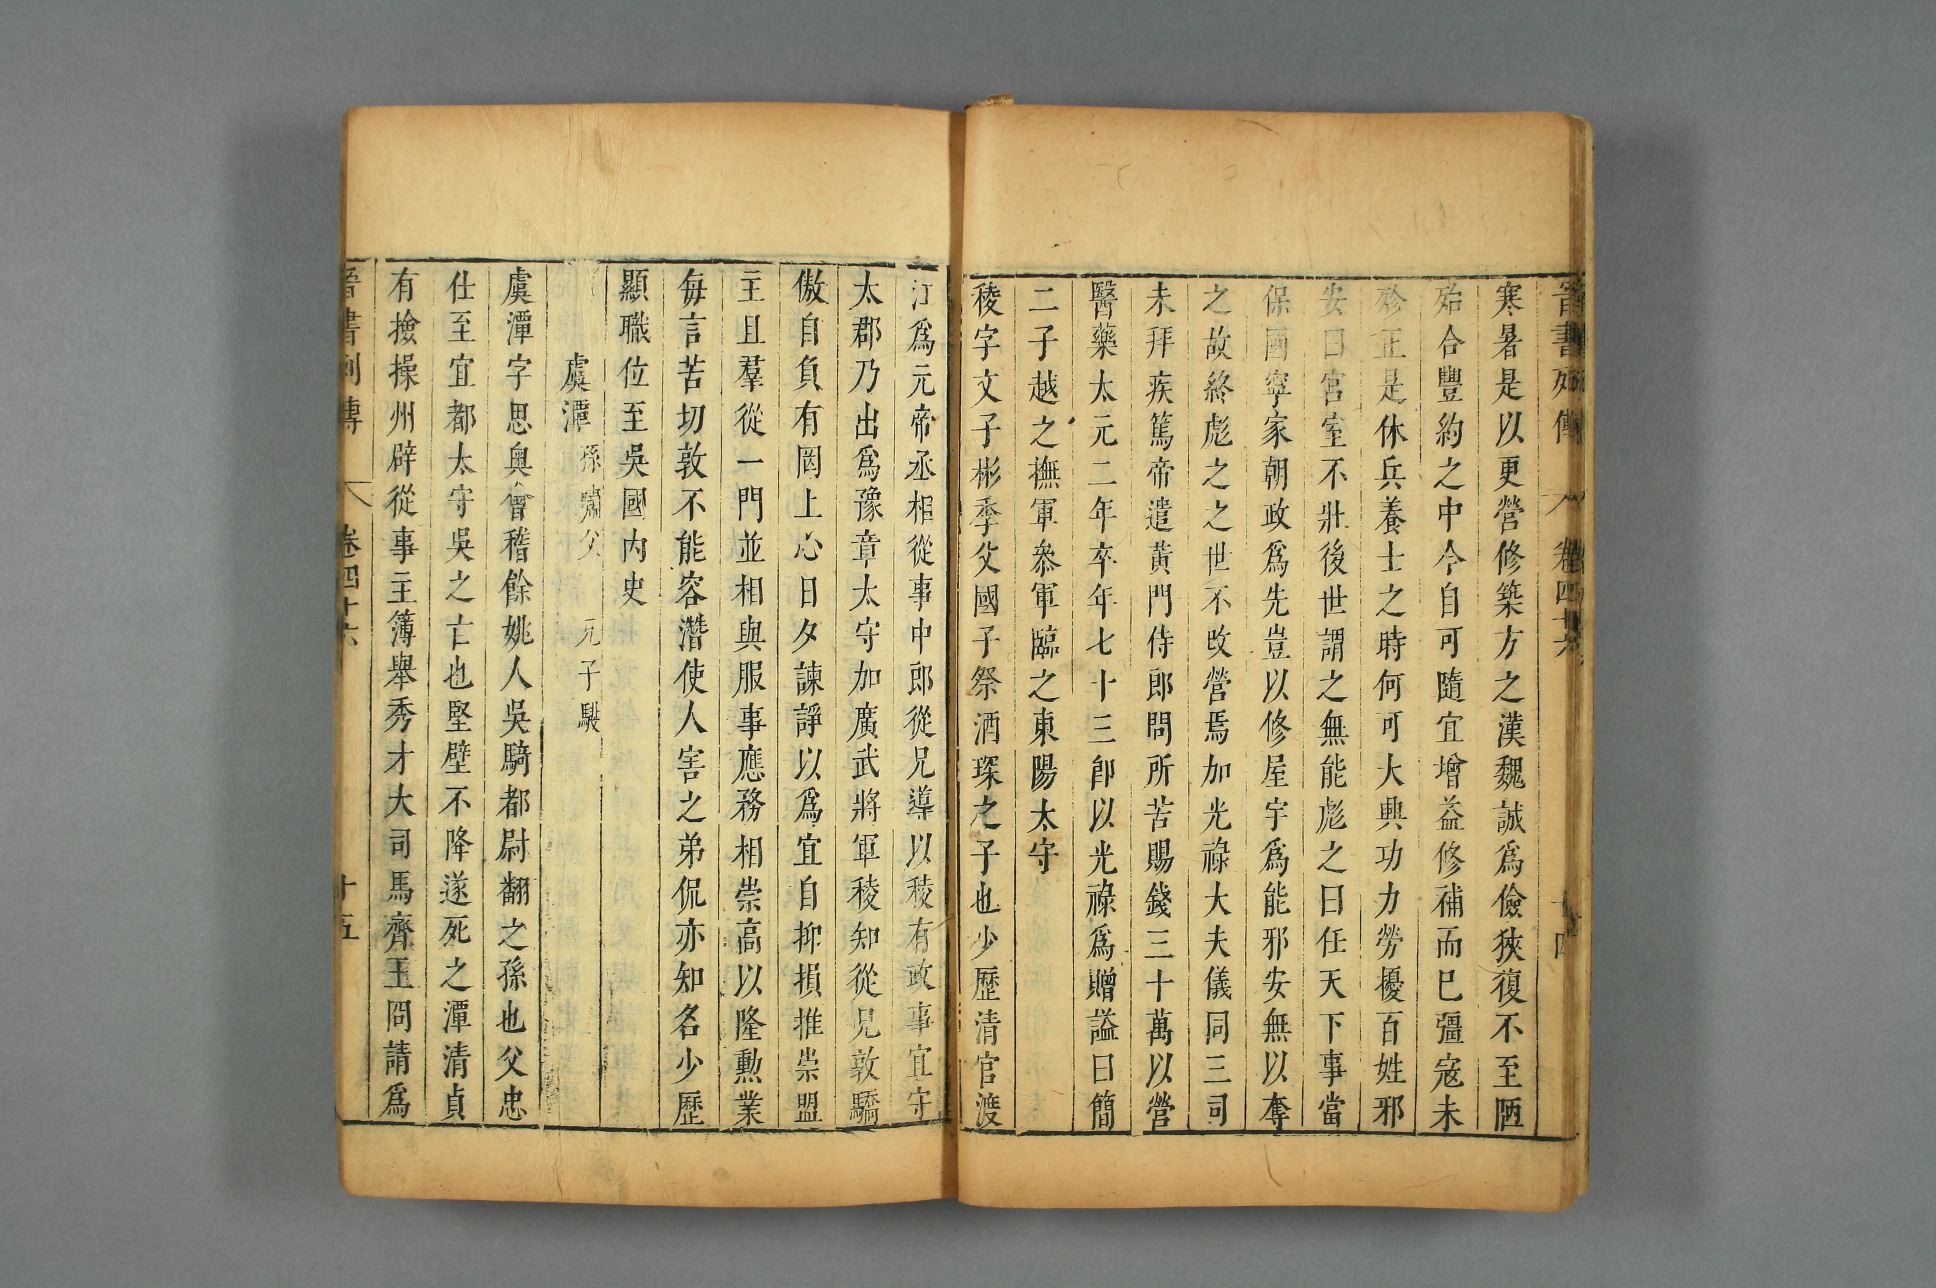 晉書列傳 卷四十六 十四
寒暑是以更營修築方之漢魏誠爲儉狹復不至陋
殆合豐約之中今自可隨宜增益修補而巳彊寇未
殄正是休兵養士之時何可大興功力勞擾百姓邪
安曰宮室不壯後世謂之無能彪之曰任天下事當
保國寧家朝政爲先豈以修屋宇爲能邪安無以奪
之故終彪之之世不改營焉加光祿大夫儀同三司
未拜疾篤帝遣黃門侍郎問所苦賜錢三十萬以營
醫藥太元二年卒年七十三卽以光祿爲贈謚曰簡
二子越之撫軍叅軍臨之東陽太守
稜字文子彬季父國子祭酒琛之子也少歷清官渡
江爲元帝丞相從事中郎從兄導以稜有政事宜守
太郡乃出爲豫章太守加廣武將軍稜知從兄敦驕
傲自負有罔上心日夕諫諍以爲宜自抑損推崇盟
主且羣從一門並相與服事應務相崇高以隆勲業
每言苦切敦不能容潛使人害之弟侃亦知名少歷
顯職位至吳國內史
虞潭 孫嘯父 兄子𩦎
虞潭字思奧會稽餘姚人吳騎都尉翻之孫也父忠
仕至宜都太守吳之亡也堅壁不降遂死之潭清貞
有撿操州辟從事主簿舉秀才大司馬齊王冏請爲
晉書列傳 卷四十六 十五